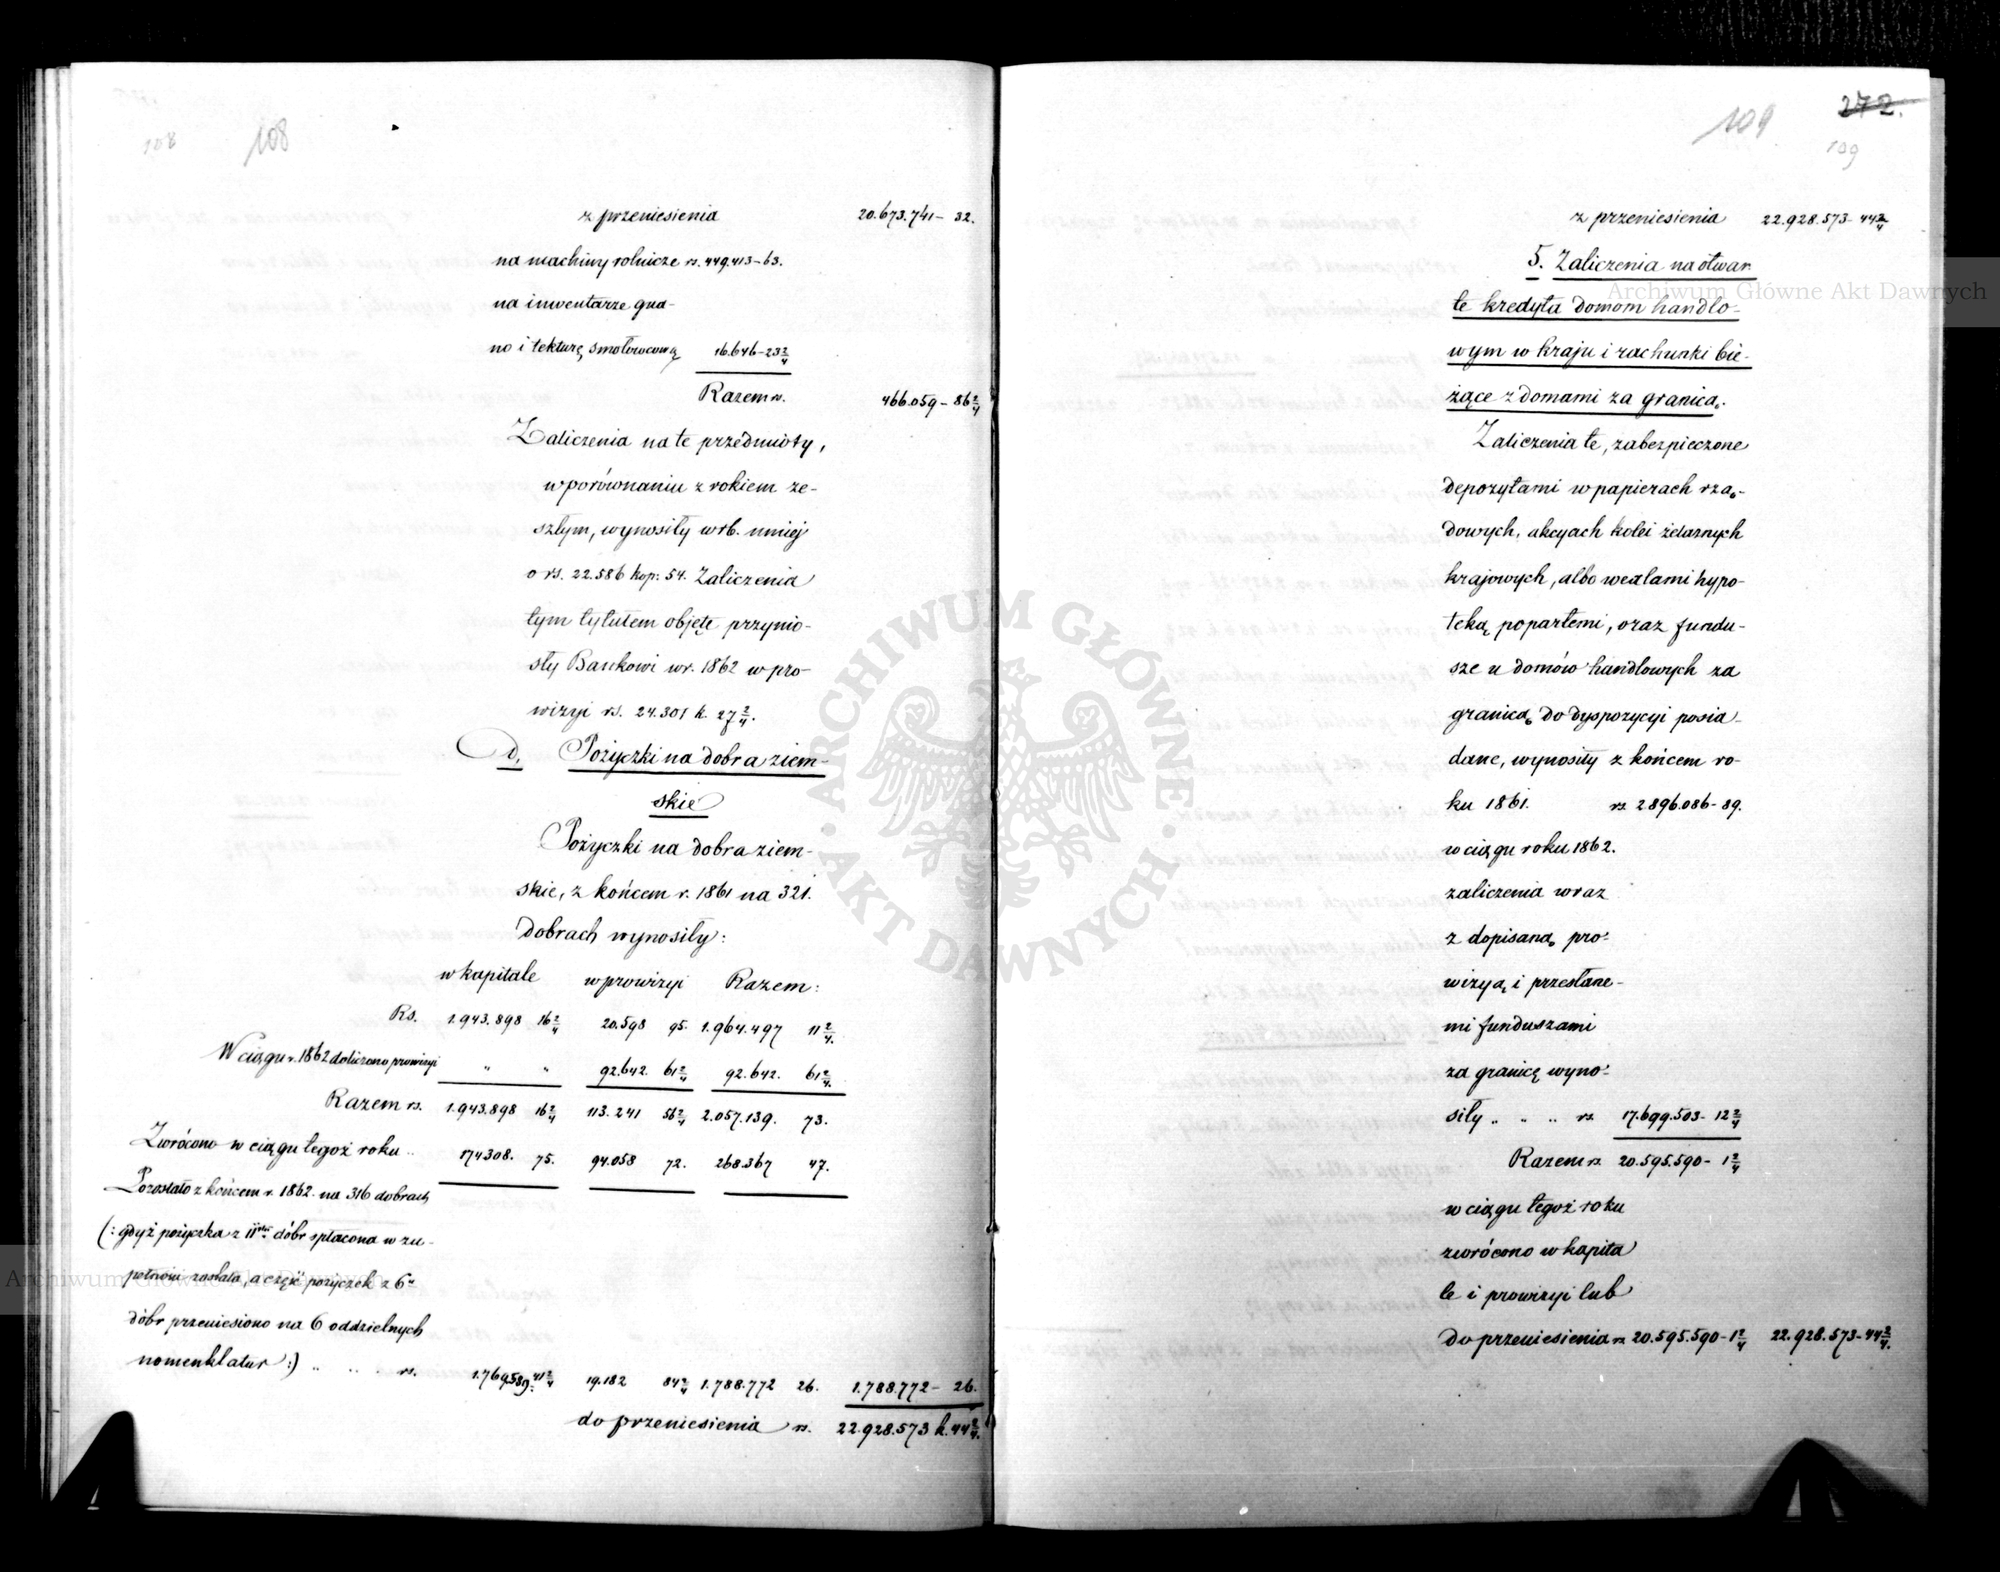 108
108
z przeniesienia 20.673.741 – 32.
na machiny rolnicze rs. 449.413 – 63.
na inwentarze gua-
no i tekturę smołowcową 16.646 – 23 2/4
Razem rs. 466.059 – 86 2/4
Zaliczenia na te przedmioty,
w porównaniu z rokiem ze-
szłym, wynosiły w rb. mniej
o rs. 22.586 kop: 54. Zaliczenia
tym tytułem objęte przynio-
sły Bankowi w r. 1862 w pro-
wizyi rs. 24.301 k. 27 2/4.
D, Pożyczki na dobra ziem-
skie
Pożyczki na dobra ziem-
skie, z końcem r. 1861 na 321.
dobrach wynosiły:
w kapitale w prowizyi Razem:
Rs. 1.943.898 16 2/4 20.598 95. 1.964.497 11 2/4.
W ciągu r. 1862 doliczono prowizyi " " 92.642. 61 2/4 92.642. 61 2/4.
Razem rs. 1.943.898 16 2/4 113.241 56 2/4 2.057.139. 73.
Zwrócono w ciągu tegoż roku .. 174308. 75. 94.058 72. 268.367 47.
Pozostało z końcem r. 1862. na 316 dobrach
(: gdyż pożyczka z 11stu dóbr spłacona w zu-
pełności została, a część pożyczek z 6u
dóbr przeniesiono na 6 oddzielnych
nomenklatur :) .. .. . rs. 1.769.589. 41 2/4 19.182 84 2/4 1.788.772 26. 1.788.772 – 26.
do przeniesienia rs. 22.928.573 k. 44 2/4.
272.
109
109
z przeniesienia 22.928.573 – 44 2/4
5. Zaliczenia na otwar
te kredyta domom handlo-
wym w kraju i rachunki bie-
żące z domami za granicą.
Zaliczenia te, zabezpieczone
depozytami w papierach rzą-
dowych, akcyach kolei żelaznych
krajowych, albo wexlami hypo-
teką popartemi, oraz fundu-
sze u domów handlowych za
granicą do dyspozycyi posia-
dane, wynosiły z końcem ro-
ku 1861. rs. 2896.086 – 89.
w ciągu roku 1862.
zaliczenia wraz
z dopisaną pro-
wizyą i przesłane-
mi funduszami
za granicę wyno-
siły .. .. .. rs. 17.699.503 – 12 2/4
Razem rs. 20.595.590 – 1 2/4
w ciągu tegoż roku
zwrócono w kapita
le i prowizyi lub
do przeniesienia rs 20.595.590 – 1 2/4 22.928.573 – 44 2/4.
Archiwum Główne Akt Dawnych
Archiwum Główne Akt Dawnych
ARCHIWUM GŁÓWNE
AKT DAWNYCH